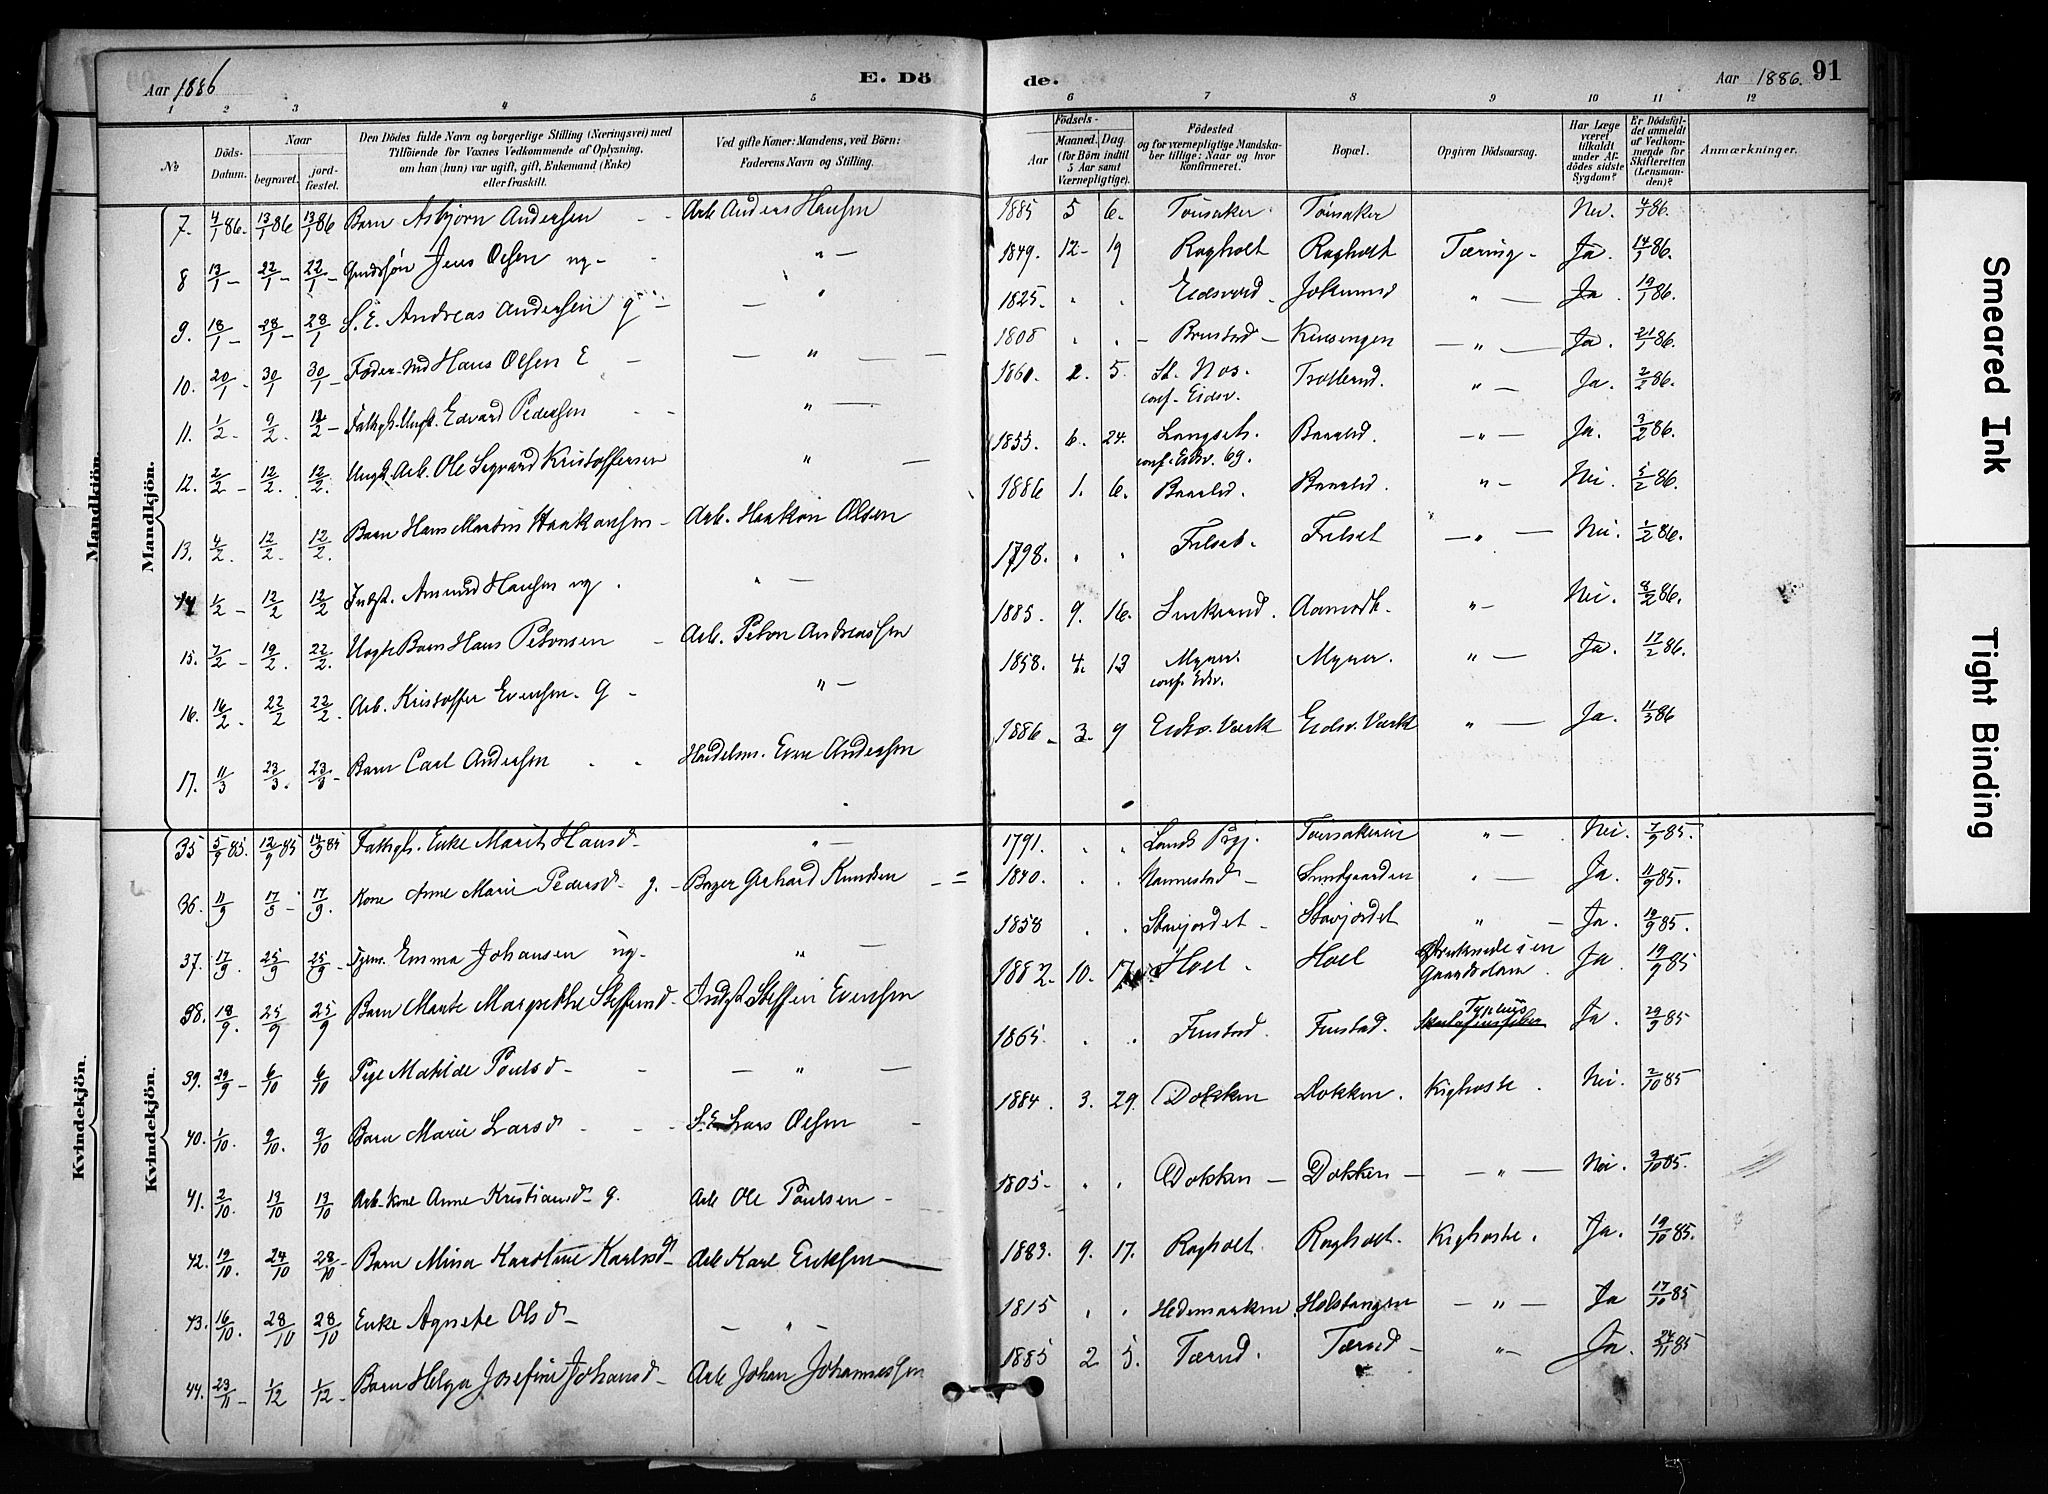 Aar 1886
E. Dö
de.
Aar 1886. 91
1 2 3 4 5 6 7 8 9 10 11 12
№
Döds-Datum.
Naar
begravet.
jord-fæstet.
Den Dödes fulde Navn og borgerlige Stilling (Næringsvei) med
Tilföiende for Voxnes Vedkommende af Oplysning,
om han (hun) var ugift, gift, Enkemand (Enke)
eller fraskilt.
Ved gifte Koner: Mandens, ved Börn:
Faderens Navn og Stilling.
Födsels-
Aar
Maaned. Dag.
(for Börn indtil
5 Aar samt
Værnepligtige).
Födested
og for værnepligtige Mandska-
ber tillige: Naar og hvor
konfirmeret.
Bopæl.
Opgiven Dödsaarsag.
Har Læge
været
tilkaldt
under Af-
dödes sidste
Sygdom?
Er Dödsfal-
det anmeldt
af Vedkom-
mende for
Skifteretten
(Lensman-
den)?
Anmærkninger.
Mandkjön.
Mandkjön.
7. 4/1 86. 13/1 86 13/1 86 Barn Asbjørn Andersen - - Arb Anders Hansen 1885 5 6. Tönsaker Tönsaker Nei. 4/1 86.
8 13/1 - 22/1 - 22/1 - Jens Olsen ug - " - 1849. 12 - 19 Ragholt Ragholt Tæring - Ja. 14/1 86.
9. 18/1 - 28/1 - 28/1 S. E. Andreas Andersen g - - " 1825. . . Eidsvold. " - Ja 19/1 86.
10. 20/1 - 30/1 30/1 - Hans Olsen E - - " - 1808 . . - - " - Ja. 21/1 86.
11. 1/2 - 9/2. 12/2 - Edvard Pedersen - - " - 1860. 2. 5. conf. Eidsv. " - Ja. 2/2 86.
12. 2/2 - 12/2. 12/2. Ungk. Arb. Ole Sigvard Kristoffersen " - 1855. 6. 24. Langset. conf. Eidsv. 69. - " - Ja. 3/2 86.
13. 4/2. 12/2 - 12/2. Barn Hans Martin Haakonsen - Arb. Haakon Olsen 1886 1. 6. " - Nei. 5/2 86.
14 1/2 - 12/2 12/2 Amund Hansen ug. " - 1798. . . Frilset. Frilset - " - Nei. 1/2 86.
15. 7/2 - 19/2. 22/2. Barn Hans Petersen - Arb. Peter Andreassen 1885. 9. 16. " - Nei. 8/2 86.
16. 16/2 - 22/2 22/2. Arb. Kristoffer Evensen. g - " - 1858. 4. 13 Myner. conf. Eidsv. Myner. " - Ja. 17/2 86.
17. 11/3 23/3. 23/3 - Barn Carl Andersen . . Handelsm. Even Andersen 1886 - 3. 9 Eidsv. Værk Eidsv. Værk " - Ja. 11/3 86
Kvindekjön.
Kvindekjön.
35 5/9 85. 12/9 85 14/9 85 Enke Marit Hansd - " - 1791. . . " - Nei. 7/9 85.
36. 11/9 17/9 - 17/9. Kone Anne Marie Pedersd - g. - Bager Gerhard Knudsen - = 1840. . . Nannestad - Sundgaarden " - Ja. 11/9 85.
37. 17/9. 25/9 25/9 - Emma Johansen ug - " - 1858 . . Stavjordet - Stavjordet " - Ja. 19/9 85.
38. 18/9. 25/9 25/9 Barn Marte Margrethe Steffensd - Indst Steffen Evensen 1882. 10. 17 Hoel. Hoel Druknede i en Gaardsdam. Ja. 19/9 85
39. 29/9 - 6/10 6/10 Pige Matilde Poulsd - - " - 1865. . . Finstad. Finstad. Typhus Ja. 29/9 85
40. 1/10. 9/10. 9/10 Barn Marie Larsd - - S.E. Lars Olsen - 1884. 3. 29. Dokken Dokken. Kighoste. Nei. 2/10 85
41. 2/10. 13/10 13/10 Arb. Kone Anne Kristiansd - g. Arb Ole Poulsen - 1805 - . . Dokken - Dokken - - " - Nei. 3/10 85.
42. 19/10. 24/10 28/10 - Barn Mina Karoline Karlsd Arb Karl Eriksen 1883. 9. 17. Ragholt. Ragholt. Kighoste. Ja. 19/10 85.
43. 16/10. 28/10 28/10 Enke Agnete Olsd - - " - 1815 . . Hedemarken. Holstangen - " - Ja 17/10 85
44. 23/11 - 1/12 1/12 - Barn Helga Josefine Johansd - Arb Johan Johannessen 1885 2 5. Tærud. Tærud - " - Ja. 24/11 85
Smeared Ink
Tight Binding